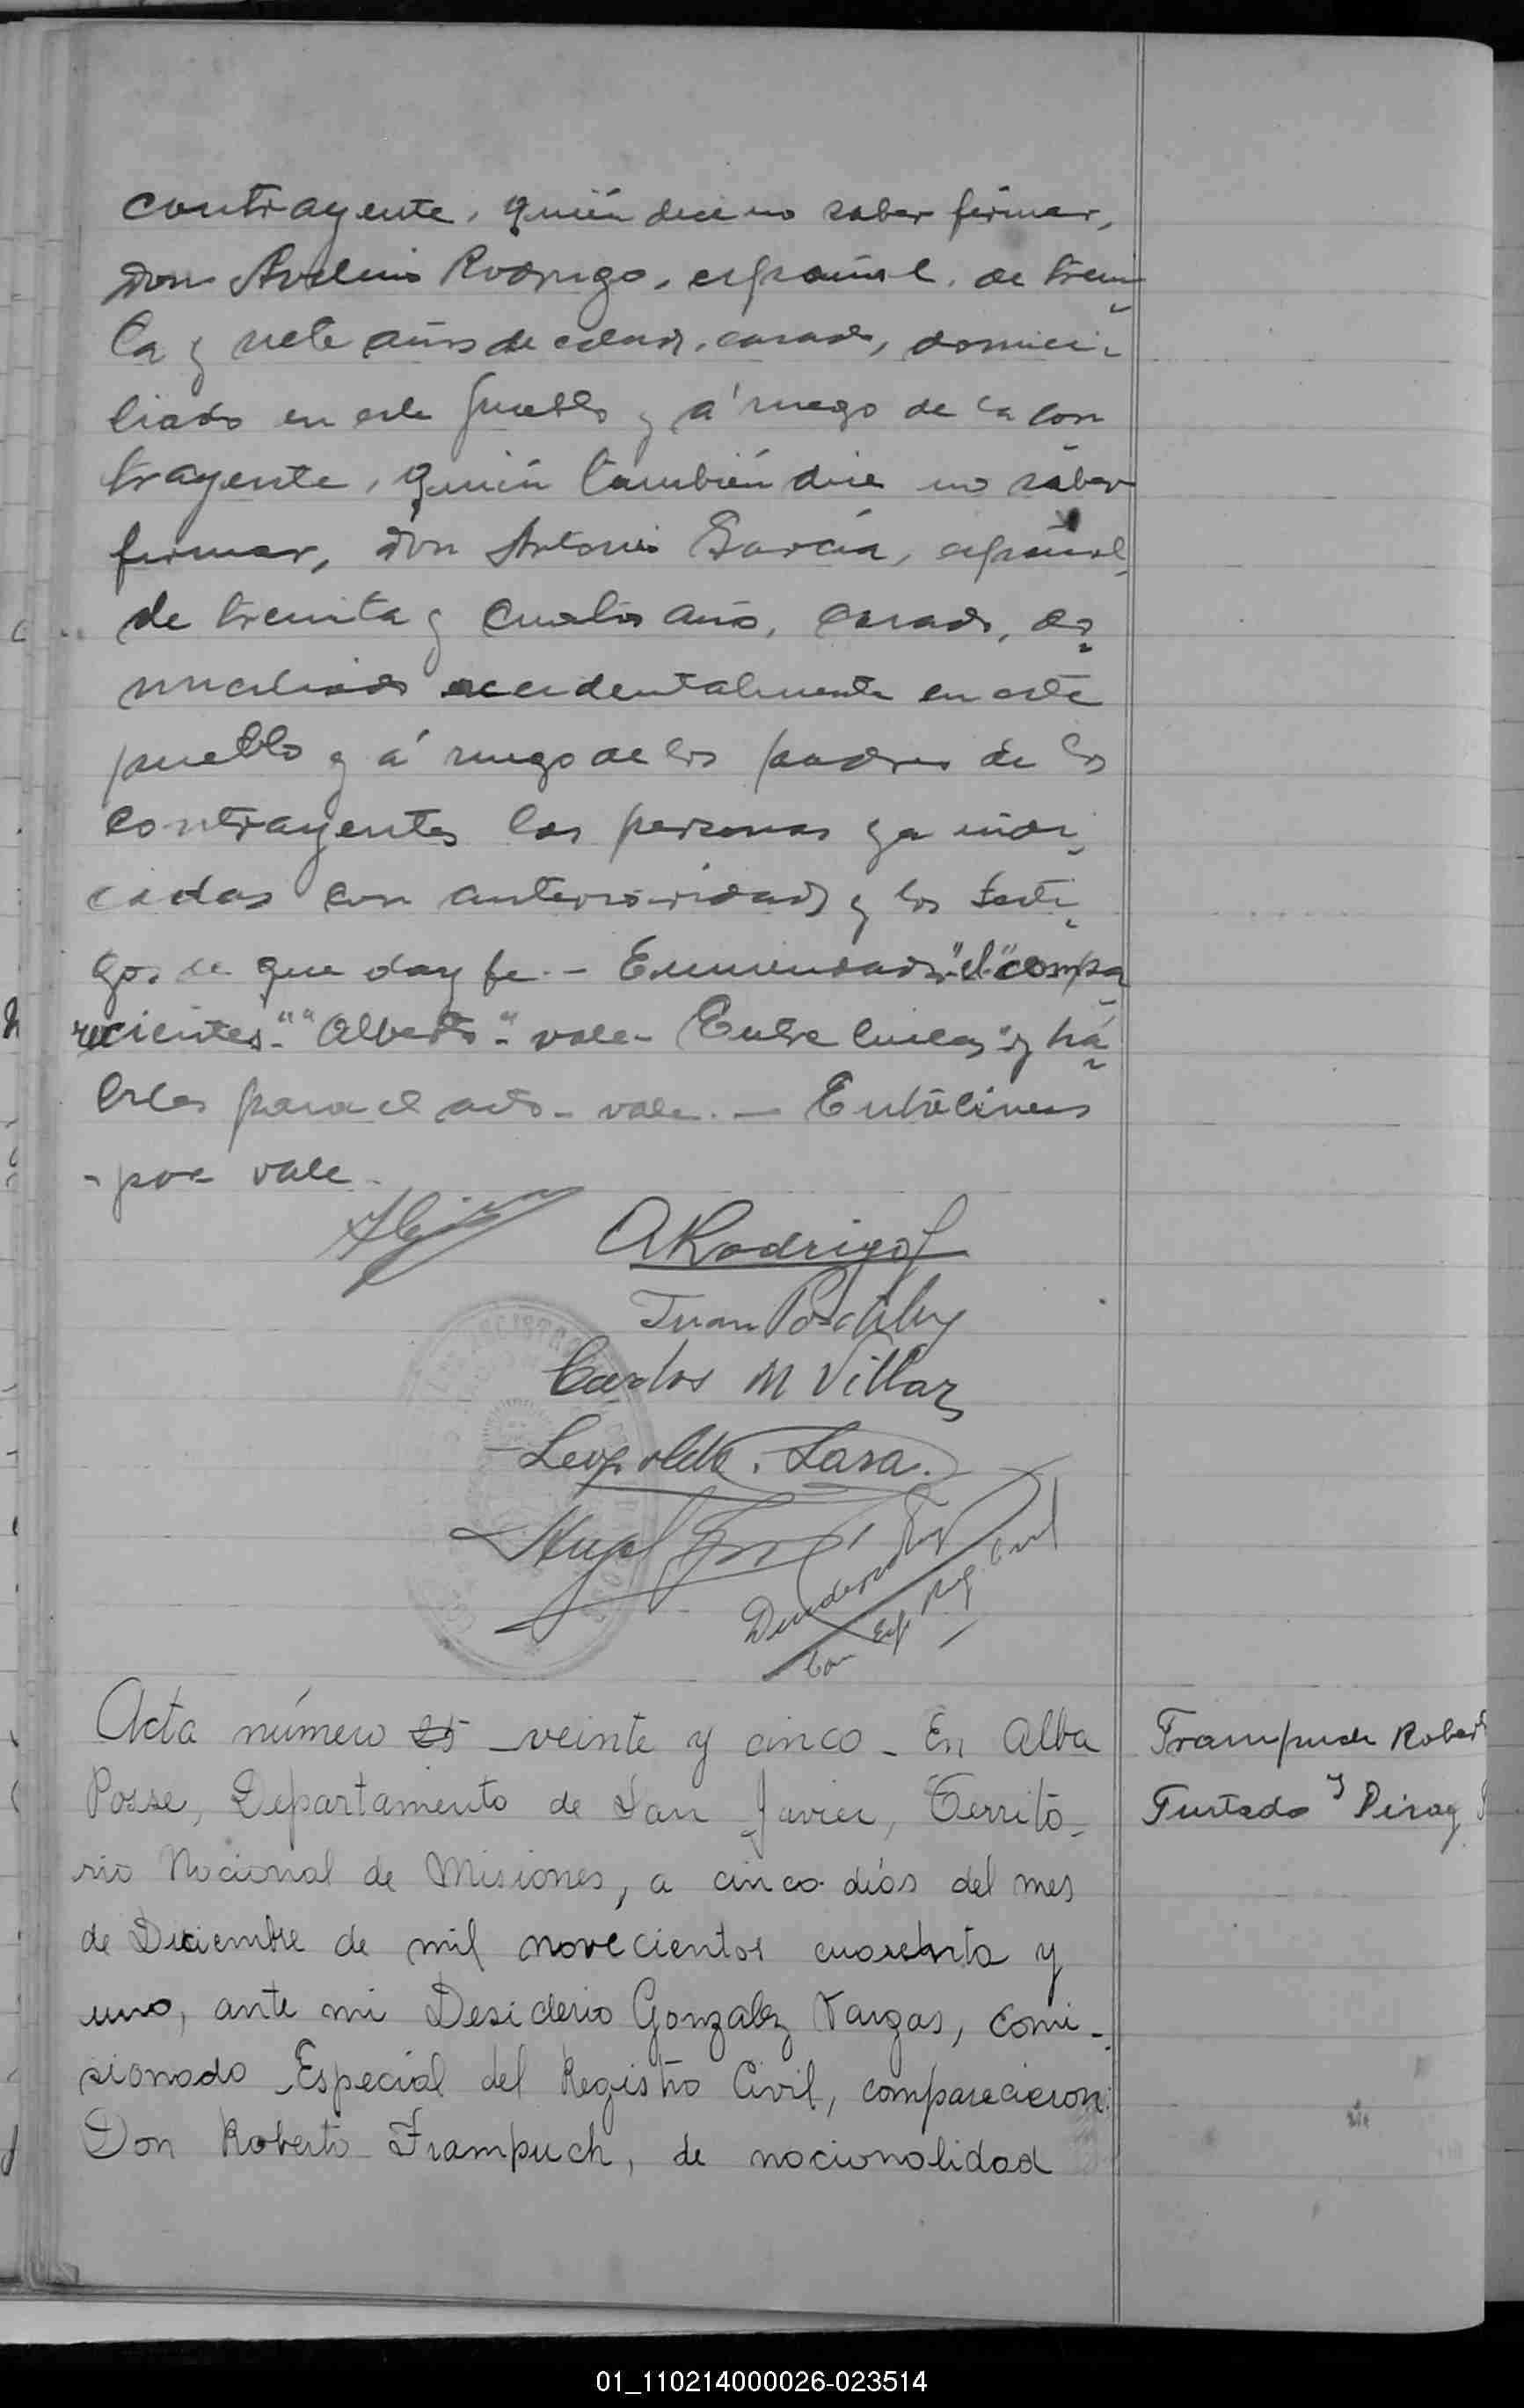 contrayente, quién dice no saber firmar,
don Avelino Rodrigo, español, de trein-
ta y siete años de edad, casado, domici-
liado en este pueblo y á ruego de la con-
trayente, quién también dice no saber
firmar, don Antonio García, español,
de treinta y cuatro años, casado, do-
miciliado accidentalmente en este
pueblo y á ruego de los padres de los
contrayentes las personas ya indi-
cadas con anterioridad y los testi-
gos de que doy fe.- Enmendado "el" "compa
recientes"-"Alberto"- vale- Entre lineas "y há-
biles para el acto- vale.- Entrelineas
- por vale-
ARodrigo
Juan
Carlos M Villar
Leopoldo Lara.
Angel
Esp Reg. Civil
Acta número 25 veinte y cinco - En Alba
Posse, Departamento de San Javier, Territo-
rio Nacional de Misiones, a cinco días del mes
de Diciembre de mil novecientos cuarenta y
uno, ante mi Desiderio Gonzalez Vargas, Comi-
sionado Especial del Registro Civil, comparecieron:
Don Roberto Frampuch, de nacionalidad
Frampuch Robert
y
Furtado
01_110214000026-023514